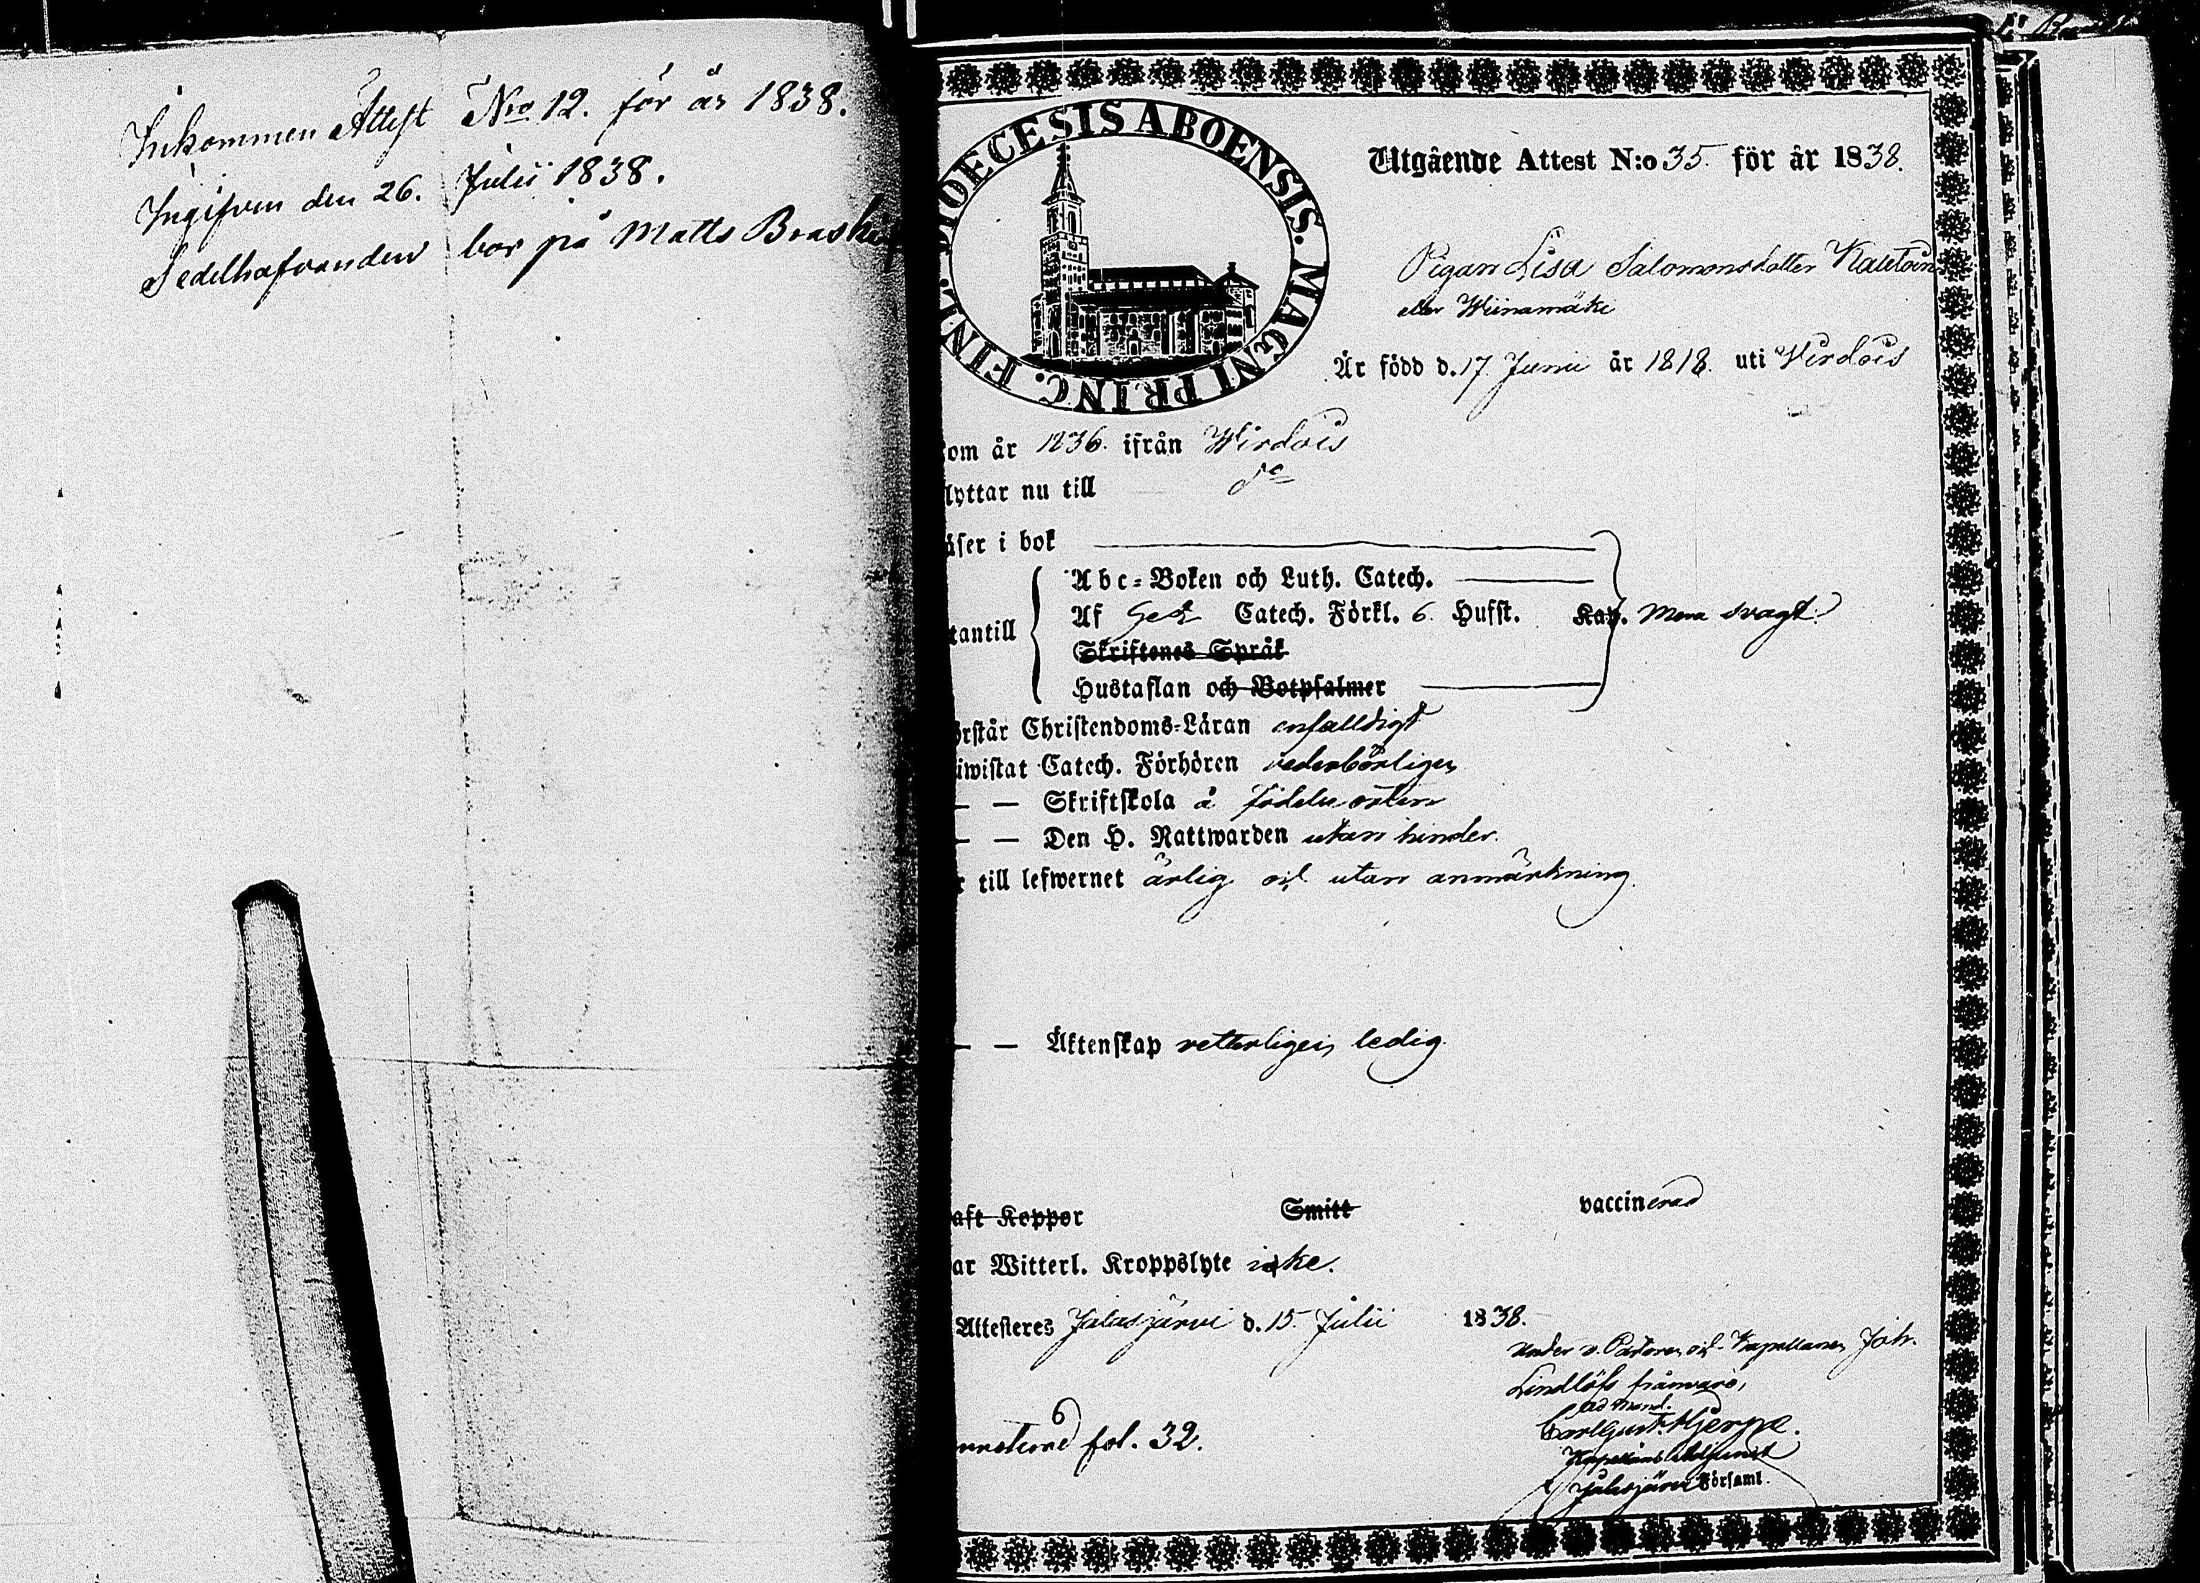 Inkommen Attest Nro 12. för år 1838.
Ingifven den 26. Julii 1838.
Sedelhafvanden bor på Matts Braski
DIOECESIS ABOENSIS. MAGNI PRINC. FINL.
Utgående Attest N:o 35. för år 1838.
Pigan Lisa Salomonsdotter
eller Wiinamäki
Är född d. 17 Junii år 1818. uti Virdois
om år 1836. ifrån Wirdois
lyttar nu till do
äser i bok
Abc-Boken och Luth. Catech.
tantill Af Catech. Förkl. 6. Hufst. Kap. mera svagt.
Skriftenes Språk
Hustaflan och Botpsalmer
örstår Christendoms-Läran enfalldigt
iwistat Catech. Förhören vederbörligen
— — Skriftskola å födelseorten
— — Den H. Nattwarden utan hinder.
r till lefwernet ärlig och utan anmärkning.
— — Äktenskap vetterligen ledig.
aft Koppor Smitt vaccinerad
ar Witterl. Kroppslyte icke.
Attesteres Jalasjärvi d. 15. Julii 1838.
under v. Pastoren och Kapellanen Joh.
Lindlöfs frånvaro,
ad mand.
Carl Gust. Hjerppe.
Kapellans Adjunct
i Jalasjärvi Församl.
fol. 32.